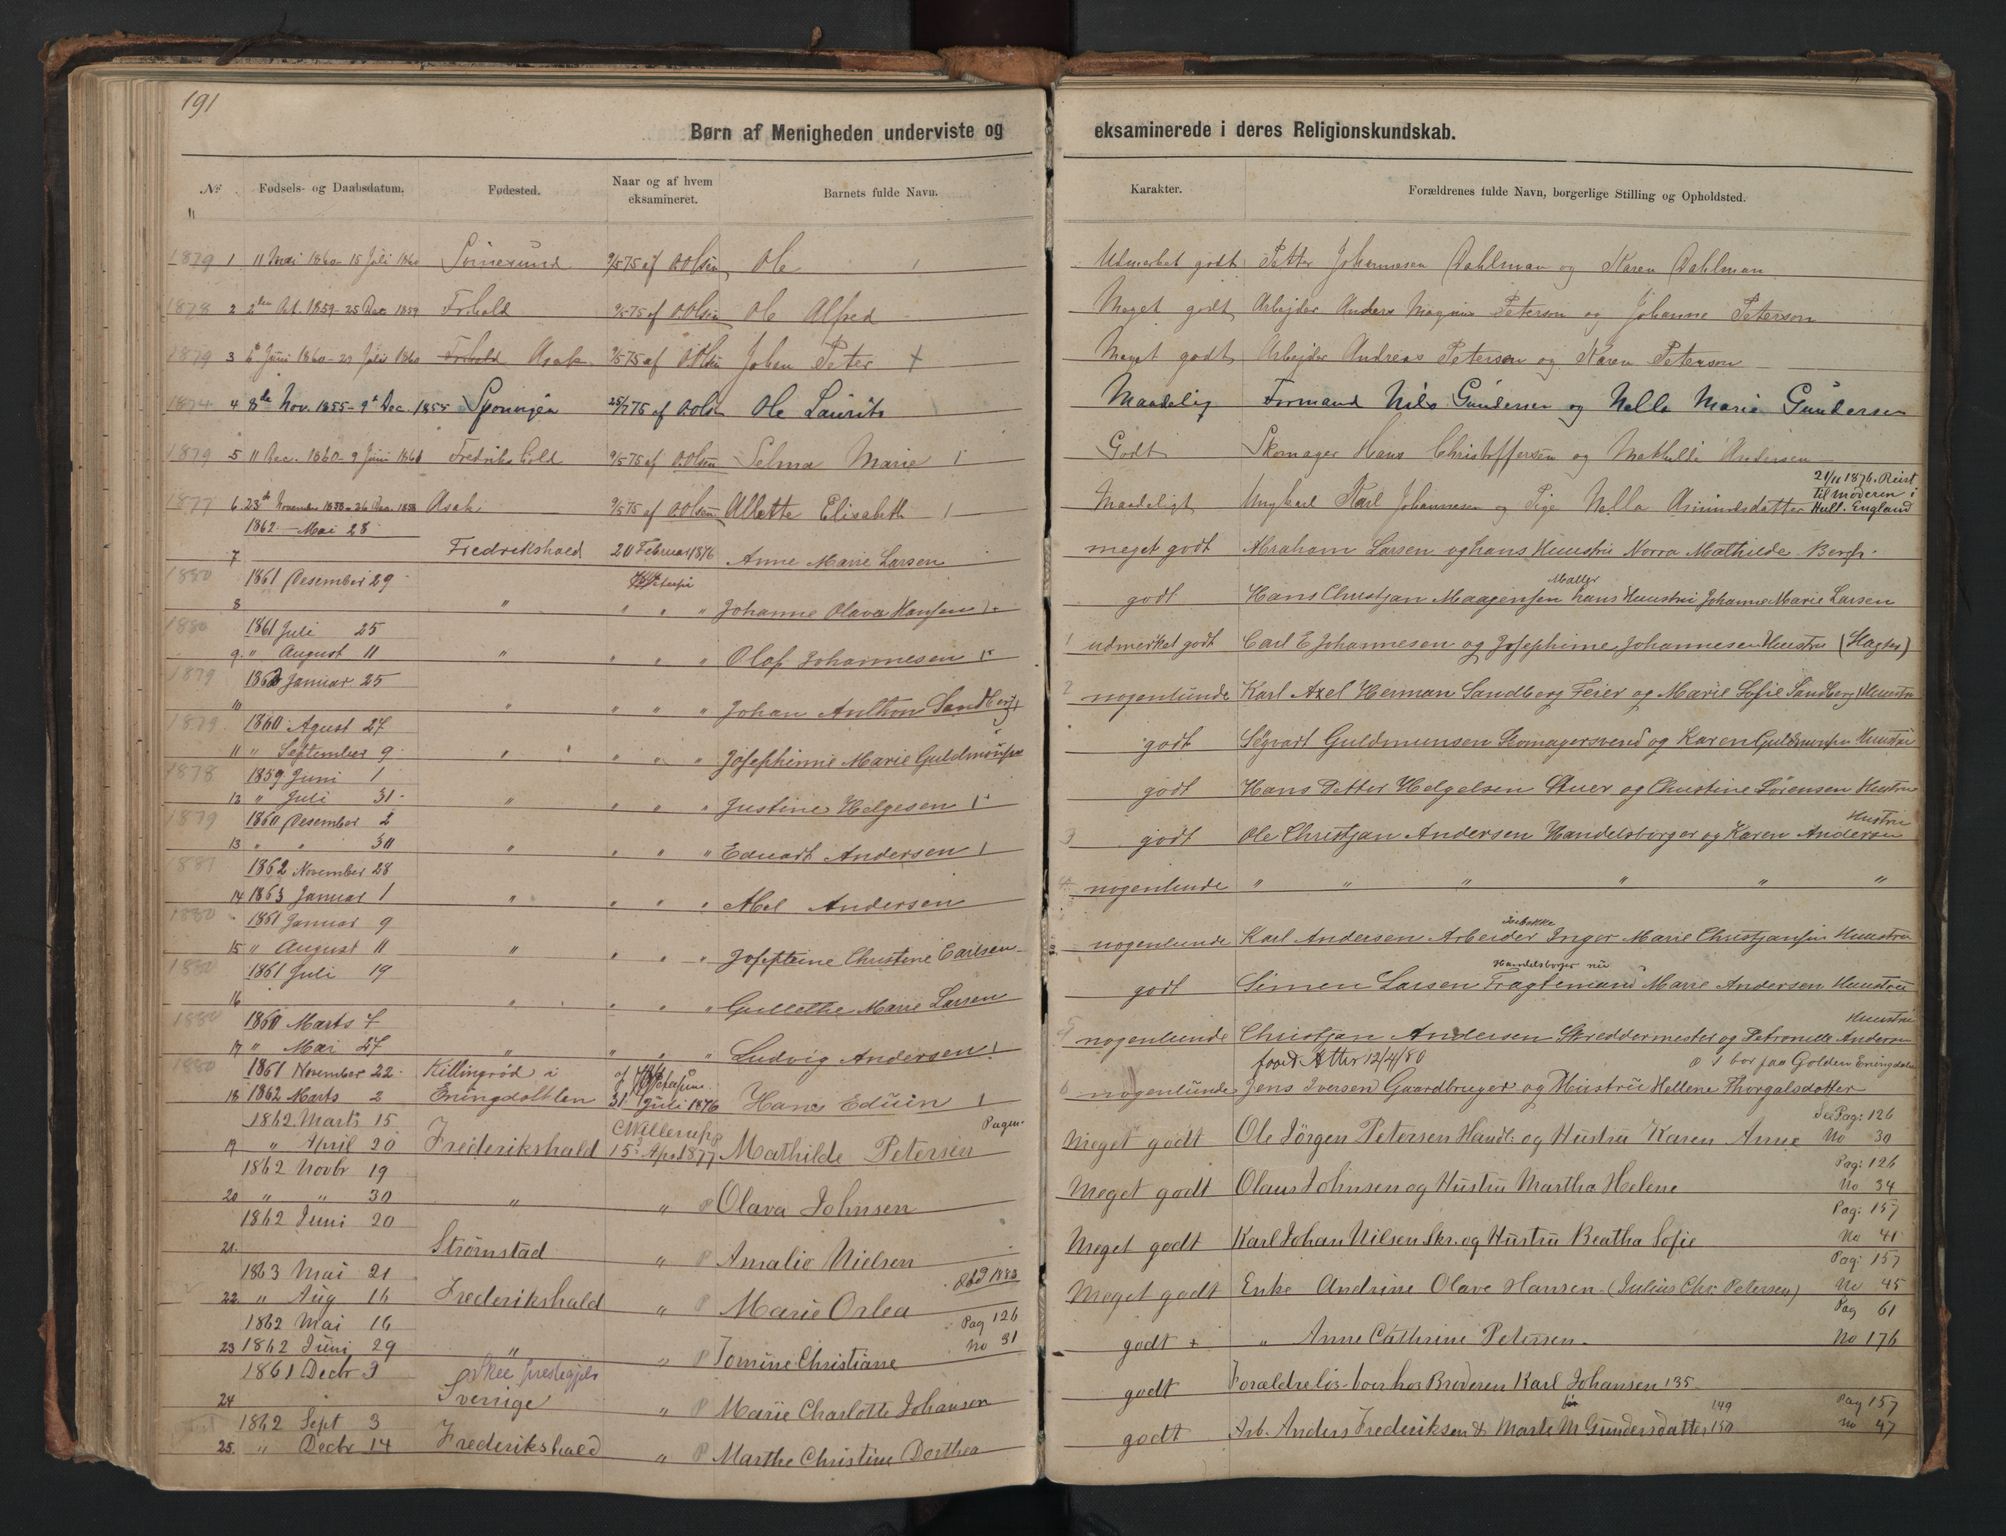 191
Børn af Menigheden underviste og eksaminerede i deres Religionskundskab.
№ Fødsels- og Daabsdatum. Fødested. Naar og af hvem eksamineret. Barnets fulde Navn. Karakter. Forældrenes fulde Navn, borgerlige Stilling og Opholdsted.
1879 1 11 Mai 1860 15 Juli 1860 9/5 75 af O.Olsen Ole Udmærket godt Petter Johannesen Dahlman og Karen Dahlman
1878 2 2den Oct. 1859 - 25 Dec 1859 Frhald 9/5 75 af O.Olsen Ole Alfred Meget godt Arbejder Anders Magnus Peterson og Johanne Peterson
1879 3 6te Juni 1860 - 29 Juli 1860 Frhald Asak 9/5 75 af O.Olsen Johan Peter + Meget godt Arbejder Andreas Peterson og Karen Peterson
1874 4 8de Nov. 1855 - 9de Dec. 1855 Sponvigen 25/7 75 af O.Olsen Ole Laurits Maadelig Formand Nils Gundersen og Nella Marie Gundersen
1879 5 11 Dec. 1860 - 9 Juni 1861 Fredrikshald 9/5 75 af O.Olsen Selma Marie Godt Skomager Hans Christoffersen og Mathilde Andersen
1877 6 23de November 1858 - 26 Dec. 1858 Asak 9/5 75 af O.Olsen Allette Elisabeth Maadeligt Ungkarl Karl Johannesen og Pige Nella Asmundsdatter 21/11 1876. Reist til moderen i Hull. England
1862 - Mai 28
7 Fredrikshald 20 Februar 1876 Anne Marie Larsen meget godt Abraham Larsen og hans Huustru Norra Mathilde Bergh.
1880 1861 Desember 29
8 " " " " Johanne Olava Hansen godt Hans Christjan Maagensen Maller hans Huustru Johanne Marie Larsen
1880 1861 Juli 25
9. " August 11 " " " " Olaf Johannesen 1 udmerket godt Carl E Johannesen og Josephine Johannesen Huustru
1879 1862 Januar 25
10 " " " " Johan Anthon Sandberg 2 nogenlunde Karl Axel Herman Sandberg Feier og Marie Sofie Sandberg Huustru
1879 1860 Agust 27
11 " September 9 " " " " Josephinne Marie Guldmunsen godt Sigvart Guldmunsen Skomagersvend og Karen Guldmunsen Huustru
1878 1859 Juni 1
12 " Juli 31 " " " " Justine Helgesen godt Hans Petter Helgelsen og Christine Sørensen Huustru
1879 1860 Desember 2
13 " " 30 " " " " Eduart Andersen 3 godt Ole Christjan Andersen Handelsborger og Karen Andersen Hustru
1881 1862 November 28
14 1863 Januar 1 " " " " Abel Andersen 4 nogenlunde " " " " " "
1880 1861 Januar 9
15 " August 11 " " " " Josephine Christine Carlsen nogenlunde Karl Andersen Arbeider Inger Marie Christjansen Huustru
1880 1861 Juli 19
16 " " " " Gullethe Marie Larsen godt Simen Larsen Fragtemand Handelsborger nu Marie Andersen Huustru
1880 1860 Marts 7
17 " Mai 27 " " " " Ludvig Andersen 5 nogenlunde Christjan Andersen Skreddermester og Petronelle Andersen Huustru
1880 1861 November 22 Killingrød i
18 1862 Marts 2 Eningdallen 31 Juli 1876 Hans Eduin 6 nogenlunde Jens Iversen Gaardbruger og Hustru Hellene Thorgalsdotter
1862 Marts 15
19 " April 20 Frederikshald C Willerup 15 Apr 1877 Mathilde Petersen Meget godt Ole Jørgen Petersen Handl: og Hustru Karen Anne Se Pag: 126 No 30
1862 Novbr 19
20 " " 30 " " Olava Johnsen Meget godt Olaus Johnsen og Hustru Martha Helene Pag: 126 No 34
1862 Juni 20
21. Strømstad " Amalie Nielsen Meget godt Karl Johan Nilsen Skr. og Hustru Beatha Sofie Pag: 157 No 41
1863 Mai 21
22. " Aug 16 Frederikshald " Marie Orlea Obd 1883 Meget godt Enke Andrine Olave Hansen (Julius Chr. Petersen) Pag: 157 No 45
1862 Mai 16
23 1862 Juni 29 " " Tomine Christiane Pag 126 No 31 godt + " Anne Cathrine Petersen Pag 61 No 176
1861 Decbr 3
24 Skee prestegjeld Sverige " Marie Charlotte Johansen godt Forældreløs - bor hos Broderen Karl Johansen 135
1862 Sept 3
25. " Decbr 14 Frederikshald " Marthe Christine Dorthea godt Arb. Anders Frederiksen & Marte M Gundersdatter 149 150 Pag 157 No 47